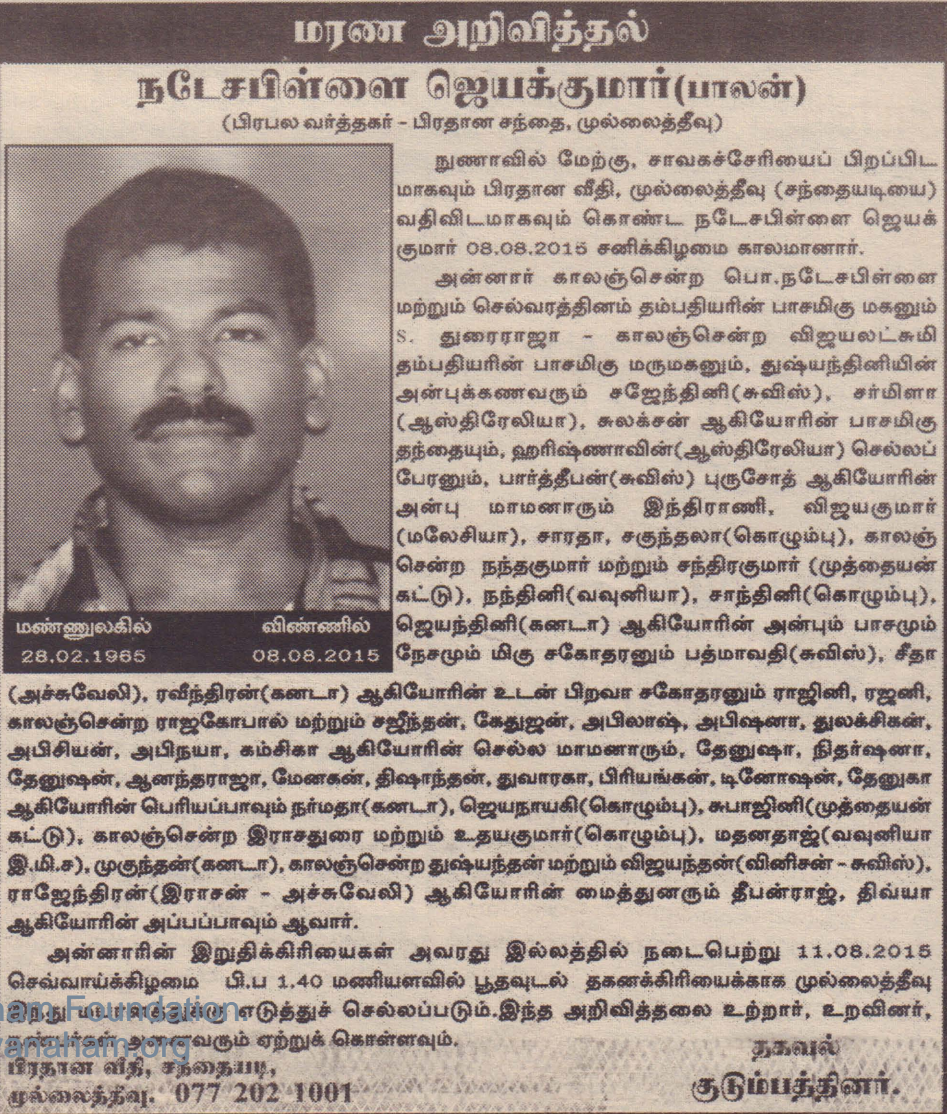 மரண அறிவித்தல்
நடேசபிள்ளை ஜெயக்குமார்(பாலன்)
(பிரபல வர்த்தகர் - பிரதான சந்தை, முல்லைத்தீவு)
நுணாவில் மேற்கு, சாவகச்சேரியைப் பிறப்பிட
மாகவும் பிரதான வீதி, முல்லைத்தீவு (சந்தையடியை)
வதிவிடமாகவும் கொண்ட நடேசபிள்ளை ஜெயக்
குமார் 08.08.2015 சனிக்கிழமை காலமானார்.
அன்னார் காலஞ்சென்ற பொ.நடேசபிள்ளை
மற்றும் செல்வரத்தினம் தம்பதியரின் பாசமிகு மகனும்
S. துரைராஜா - காலஞ்சென்ற விஜயலட்சுமி
தம்பதியரின் பாசமிகு மருமகனும், துஷ்யந்தினியின்
அன்புக்கணவரும் சஜேந்தினி(சுவிஸ்), சர்மிளா
(ஆஸ்திரேலியா), சுலக்சன் ஆகியோரின் பாசமிகு
தந்தையும், ஹரிஷ்ணாவின்(ஆஸ்திரேலியா) செல்லப்
பேரனும், பார்த்தீபன்(சுவிஸ்) புருசோத் ஆகியோரின்
அன்பு மாமனாரும் இந்திராணி, விஜயகுமார்
(மலேசியா), சாரதா, சகுந்தலா(கொழும்பு), காலஞ்
சென்ற நந்தகுமார் மற்றும் சந்திரகுமார் (முத்தையன்
கட்டு), நந்தினி(வவுனியா), சாந்தினி(கொழும்பு),
ஜெயந்தினி(கனடா) ஆகியோரின் அன்பும் பாசமும்
நேசமும் மிகு சகோதரனும் பத்மாவதி(சுவிஸ்), சீதா
மண்ணுலகில் விண்ணில்
28.02.1965 08.08.2015
(அச்சுவேலி), ரவீந்திரன்(கனடா) ஆகியோரின் உடன் பிறவா சகோதரனும் ராஜினி, ரஜனி,
காலஞ்சென்ற ராஜகோபால் மற்றும் சஜீந்தன், கேதுஜன், அபிலாஷ், அபிஷனா, துலக்சிகன்,
அபிசியன், அபிநயா, கம்சிகா ஆகியோரின் செல்ல மாமனாரும், தேனுஷா, நிதர்ஷனா,
தேனுஷன், ஆனந்தராஜா, மேனகன், திஷாந்தன், துவாரகா, பிரியங்கன், டினோஷன், தேனுகா
ஆகியோரின் பெரியப்பாவும் நர்மதா(கனடா), ஜெயநாயகி(கொழும்பு), சுபாஜினி(முத்தையன்
கட்டு), காலஞ்சென்ற இராசதுரை மற்றும் உதயகுமார்(கொழும்பு), மதனதாஜ்(வவுனியா
இ.மி.ச), முகுந்தன்(கனடா), காலஞ்சென்ற துஷ்யந்தன் மற்றும் விஜயந்தன்(வினிசன் - சுவிஸ்),
ராஜேந்திரன்(இராசன் - அச்சுவேலி) ஆகியோரின் மைத்துனரும் தீபன்ராஜ், திவ்யா
ஆகியோரின் அப்பப்பாவும் ஆவார்.
அன்னாரின் இறுதிக்கிரியைகள் அவரது இல்லத்தில் நடைபெற்று 11.08.2015
செவ்வாய்க்கிழமை பி.ப 1.40 மணியளவில் பூதவுடல் தகனக்கிரியைக்காக முல்லைத்தீவு
இந்து மயானத்துக்கு எடுத்துச் செல்லப்படும்.இந்த அறிவித்தலை உற்றார், உறவினர்,
நண்பர்கள் அனைவரும் ஏற்றுக் கொள்ளவும்.
பிரதான வீதி, சந்தையடி,
முல்லைத்தீவு. 077 202 1001
தகவல்
குடும்பத்தினர்.
ham Foundation
anaham.org